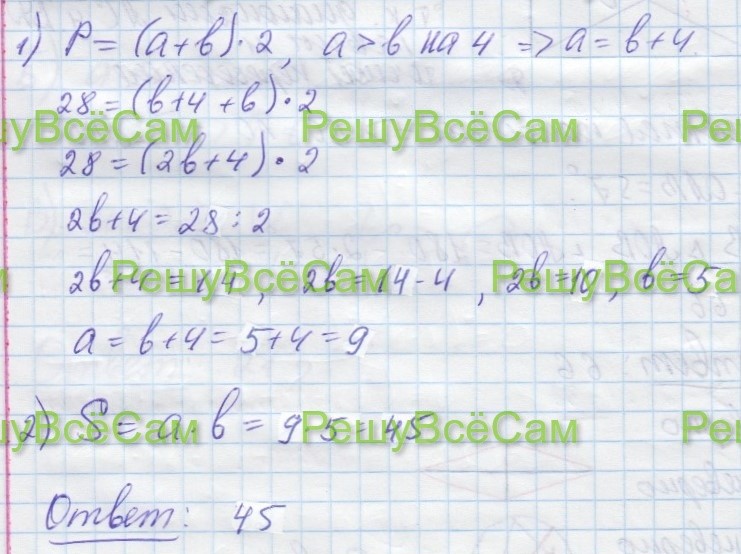 1) P = (a+b)·2, a > b на 4 => a = b+4
28 = (b+4+b)·2
РешуВсёСам РешуВсёСам
28 = (2b+4)·2
2b+4 = 28 : 2
2b+4 = 14, 2b = 14-4, 2b = 10, b = 5
РешуВсёСам РешуВсёСа
a = b+4 = 5+4 = 9
2) S = a·b = 9·5 = 45
РешуВсёСам РешуВсёСам
Ответ: 45